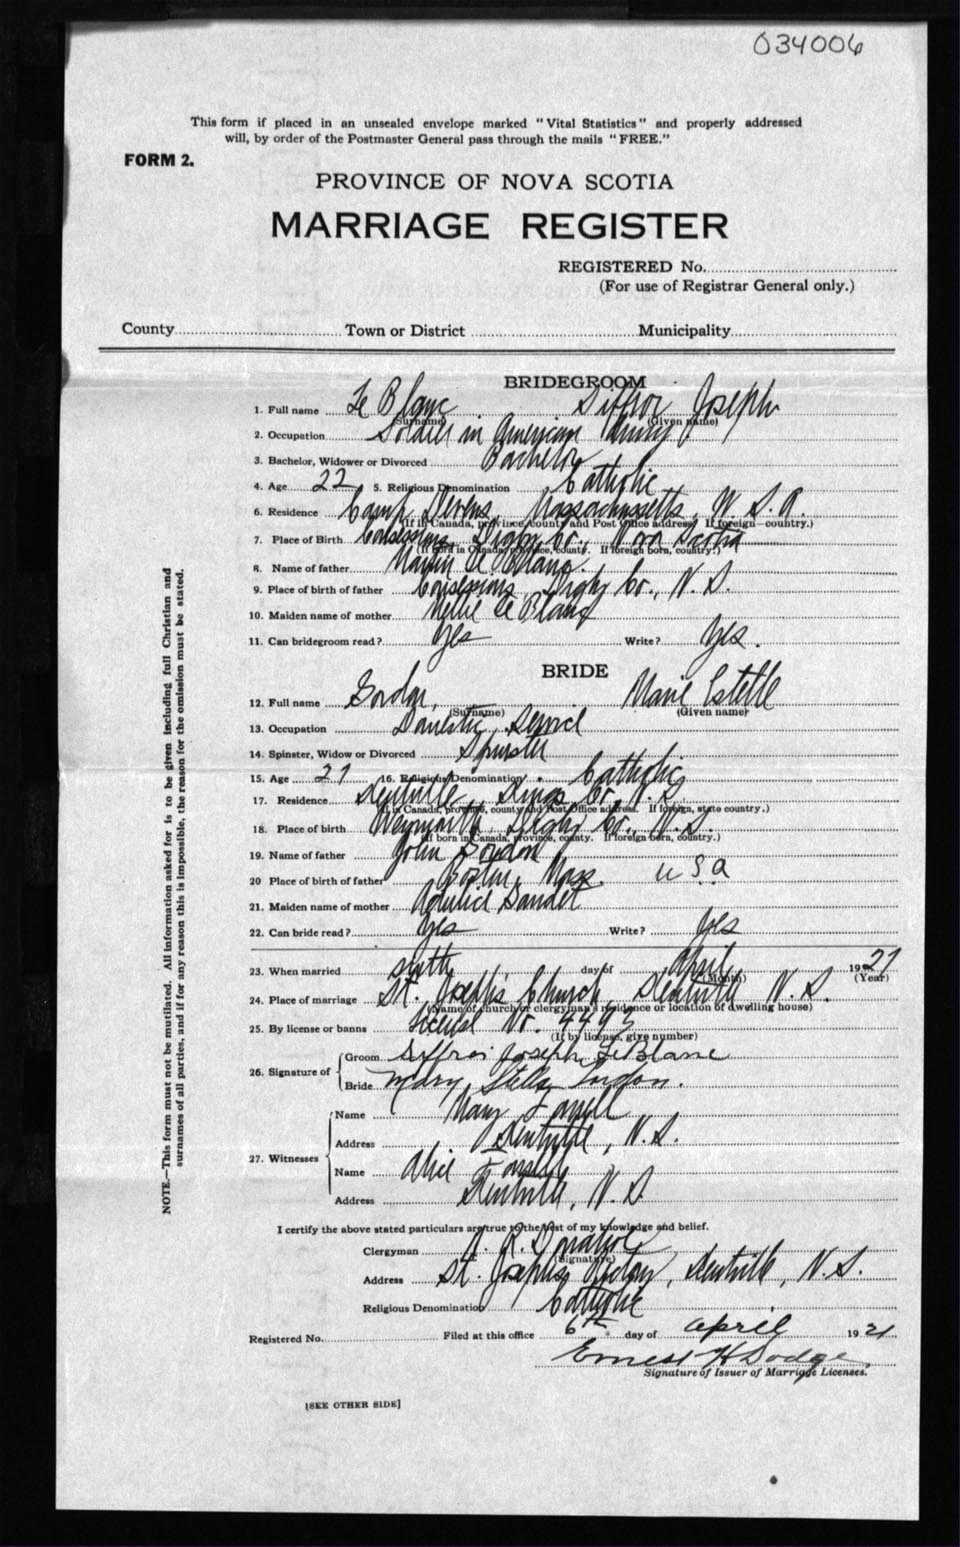 034006
This form if placed in an unsealed envelope marked "Vital Statistics" and properly addressed
will, by order of the Postmaster General pass through the mails "FREE."
FORM 2.
PROVINCE OF NOVA SCOTIA
MARRIAGE REGISTER
REGISTERED No.
(For use of Registrar General only.)
County Town or District Municipality
BRIDEGROOM
1. Full name Le Blanc Siffroi Joseph
(Surname) (Given name)
2. Occupation Soldier in American Army
3. Bachelor, Widower or Divorced Bachelor
4. Age 22 5. Religious Denomination Catholic
6. Residence Camp Devens, Massachusetts, U.S.A.
(If in Canada, province, county and Post Office address. If foreign—country.)
7. Place of Birth Digby Co., Nova Scotia
(If born in Canada, province, county. If foreign born, country.)
8. Name of father Martin Le Blanc.
9. Place of birth of father Digby Co., N.S.
10. Maiden name of mother Nellie Le Blanc
11. Can bridegroom read? Yes Write? Yes.
BRIDE
12. Full name Gordon, Marie Estelle
(Surname) (Given name)
13. Occupation Domestic Service
14. Spinster, Widow or Divorced Spinster
15. Age 21 16. Religious Denomination Catholic
17. Residence Kentville, Kings Co., N.S.
(If in Canada, province, county and Post Office address. If foreign, state country.)
18. Place of birth Weymouth, Digby Co., N.S.
(If born in Canada, province, county. If foreign born, country.)
19. Name of father John Gordon
20 Place of birth of father Boston, Mass. U S A
21. Maiden name of mother
22. Can bride read? Yes Write? Yes
23. When married sixth day of April 1921
(Month) (Year)
24. Place of marriage St. Joseph's Church, Kentville N.S.
(Name of church or clergyman's residence or location of dwelling house)
25. By license or banns License No. 4493
(If by license, give number)
26. Signature of
Groom Siffroi Joseph LeBlanc
Bride Mary Stella Gordon.
27. Witnesses
Name Mary
Address Kentville, N.S.
Name Alice
Address Kentville, N.S.
I certify the above stated particulars are true to the best of my knowledge and belief.
Clergyman
(Signature)
Address St. Joseph's Rectory, Kentville, N.S.
Religious Denomination Catholic
Registered No. Filed at this office 6th day of April 1921
Ernest H Dodge,
Signature of Issuer of Marriage Licenses.
[SEE OTHER SIDE]
NOTE.—This form must not be mutilated. All information asked for is to be given including full Christian and
surnames of all parties, and if for any reason this is impossible, the reason for the omission must be stated.